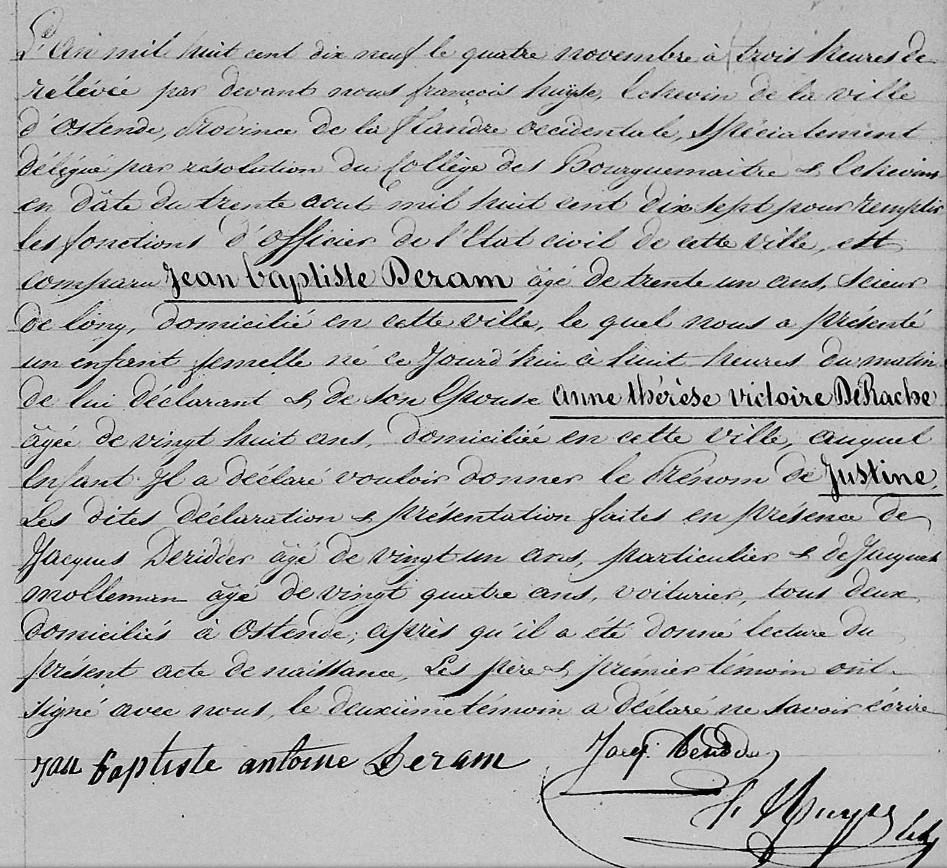 L'an mil huit cent dix neuf le quatre novembre à trois heures de
rélévée par devant nous françois huÿse, Echevin de la ville
d'Ostende, province de la flandre occidentale, spécialement
délégué par résolution du Collège des Bourguemaitre & Echevins
en dâte du trente aout mil huit cent dix sept pour remplir
les fonctions d'officier de l'Etat civil de cette ville, est
comparu Jean baptiste Deram âgé de trente un ans, scieur
de long, domicilié en cette ville, le quel nous a présenté
un enfant femelle né ce Jourd'hui à huit heures du matin
de lui déclarant & de son Epouse anne thérèse victoire DeRache
âgée de vingt huit ans, domiciliée en cette ville, auquel
Enfant Il a déclaré vouloir donner le Prénom de Justine
Les dites déclaration & présentation faites en présence de
Jacques Deridder âgé de vingt un ans, particulier & de Jacques
molleman âgé de vingt quatre ans, voiturier, tous deux
domiciliés à Ostende, après qu'il a été donné lecture du
présent acte de naissance, Les père & prémier témoin ont
signé avec nous, le deuxieme témoin a déclaré ne savoir écrire
Jan baptiste antoine Deram